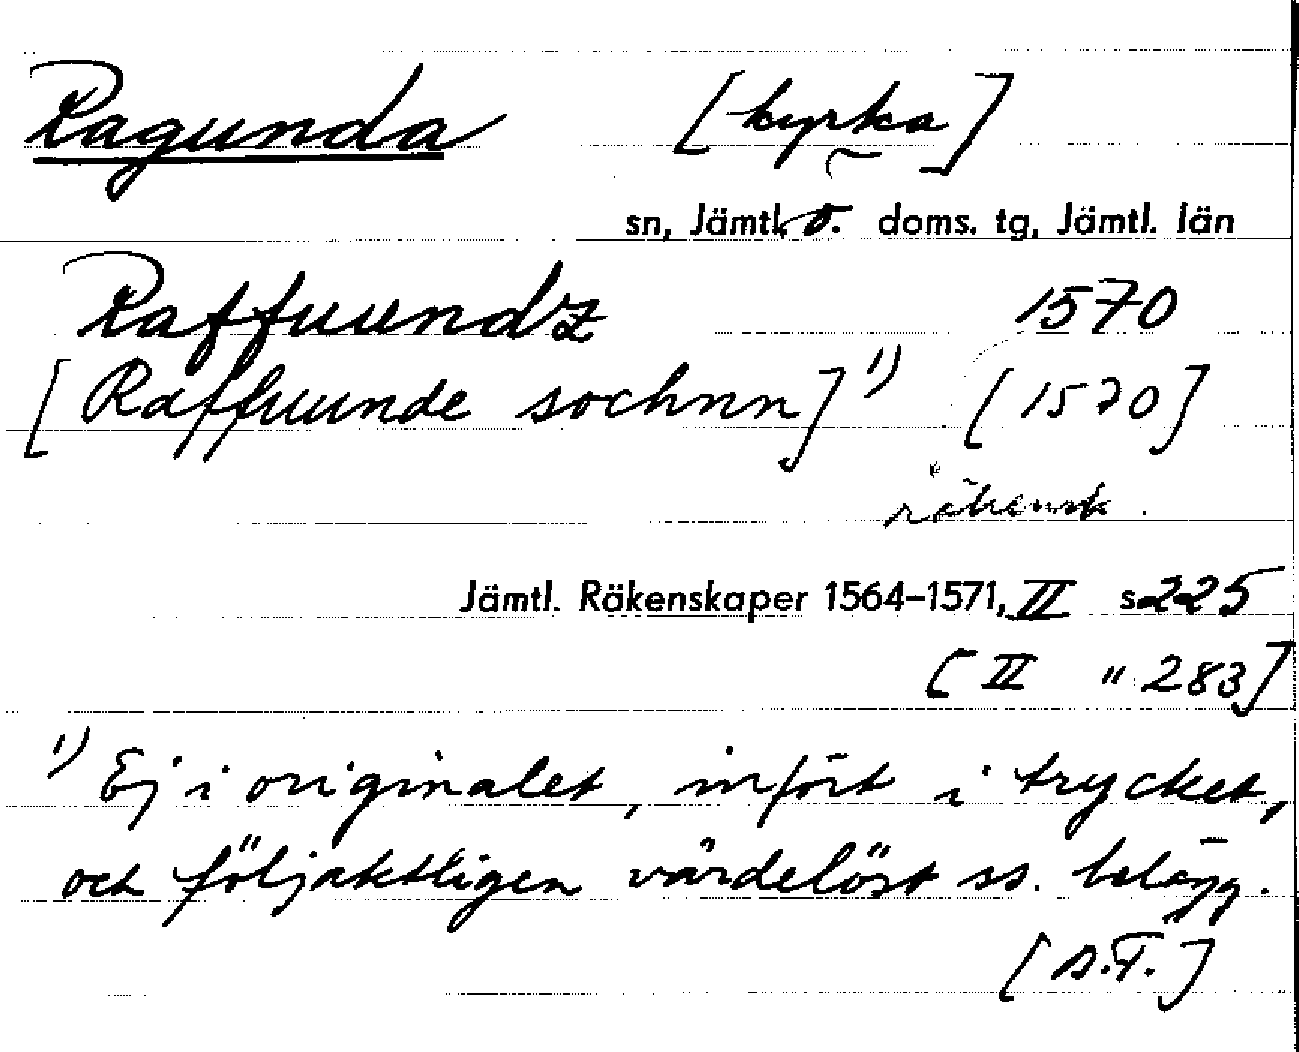 Ragunda [kyrka]
sn, Jämtl. ö. doms. tg, Jämtl. län
Raffuundz 1570
[Raffuunde sochnn] 1) [1570]
räkensk.
Jämtl. Räkenskaper 1564–1571, II s 225
[II " 283]
1) Ej i originalet, infört i trycket,
och följaktligen värdelöst ss. belägg.
[s.T.]